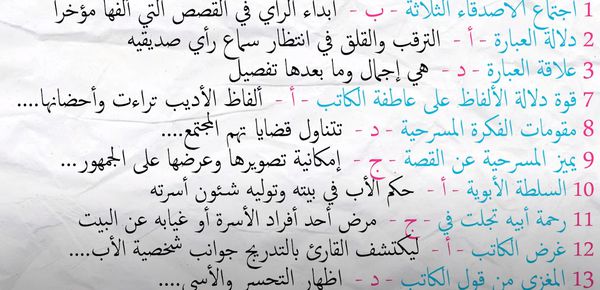 1 اجتماع الاصدقاء الثلاثة - ب - ابداء الرأي في القصص التي ألفها مؤخرا
2 دلالة العبارة - أ - الترقب والقلق في انتظار سماع رأي صديقيه
3 علاقة العبارة - د - هي إجمال وما بعدها تفصيل
7 قوة دلالة الألفاظ على عاطفة الكاتب - أ - ألفاظ الأديب تراءت وأحضانها....
8 مقومات الفكرة المسرحية - د - تتناول قضايا تهم المجتمع....
9 يميز المسرحية عن القصة - ج - إمكانية تصويرها وعرضها على الجمهور...
10 السلطة الأبوية - أ - حكم الأب في بيته وتوليه شئون أسرته
11 رحمة أبيه تجلت في - ج - مرض أحد أفراد الأسرة أو غيابه عن البيت
12 غرض الكاتب - أ - ليكتشف القارئ بالتدريج جوانب شخصية الأب....
13 المغزى من قول الكاتب - د - اظهار التحسر والأسى....